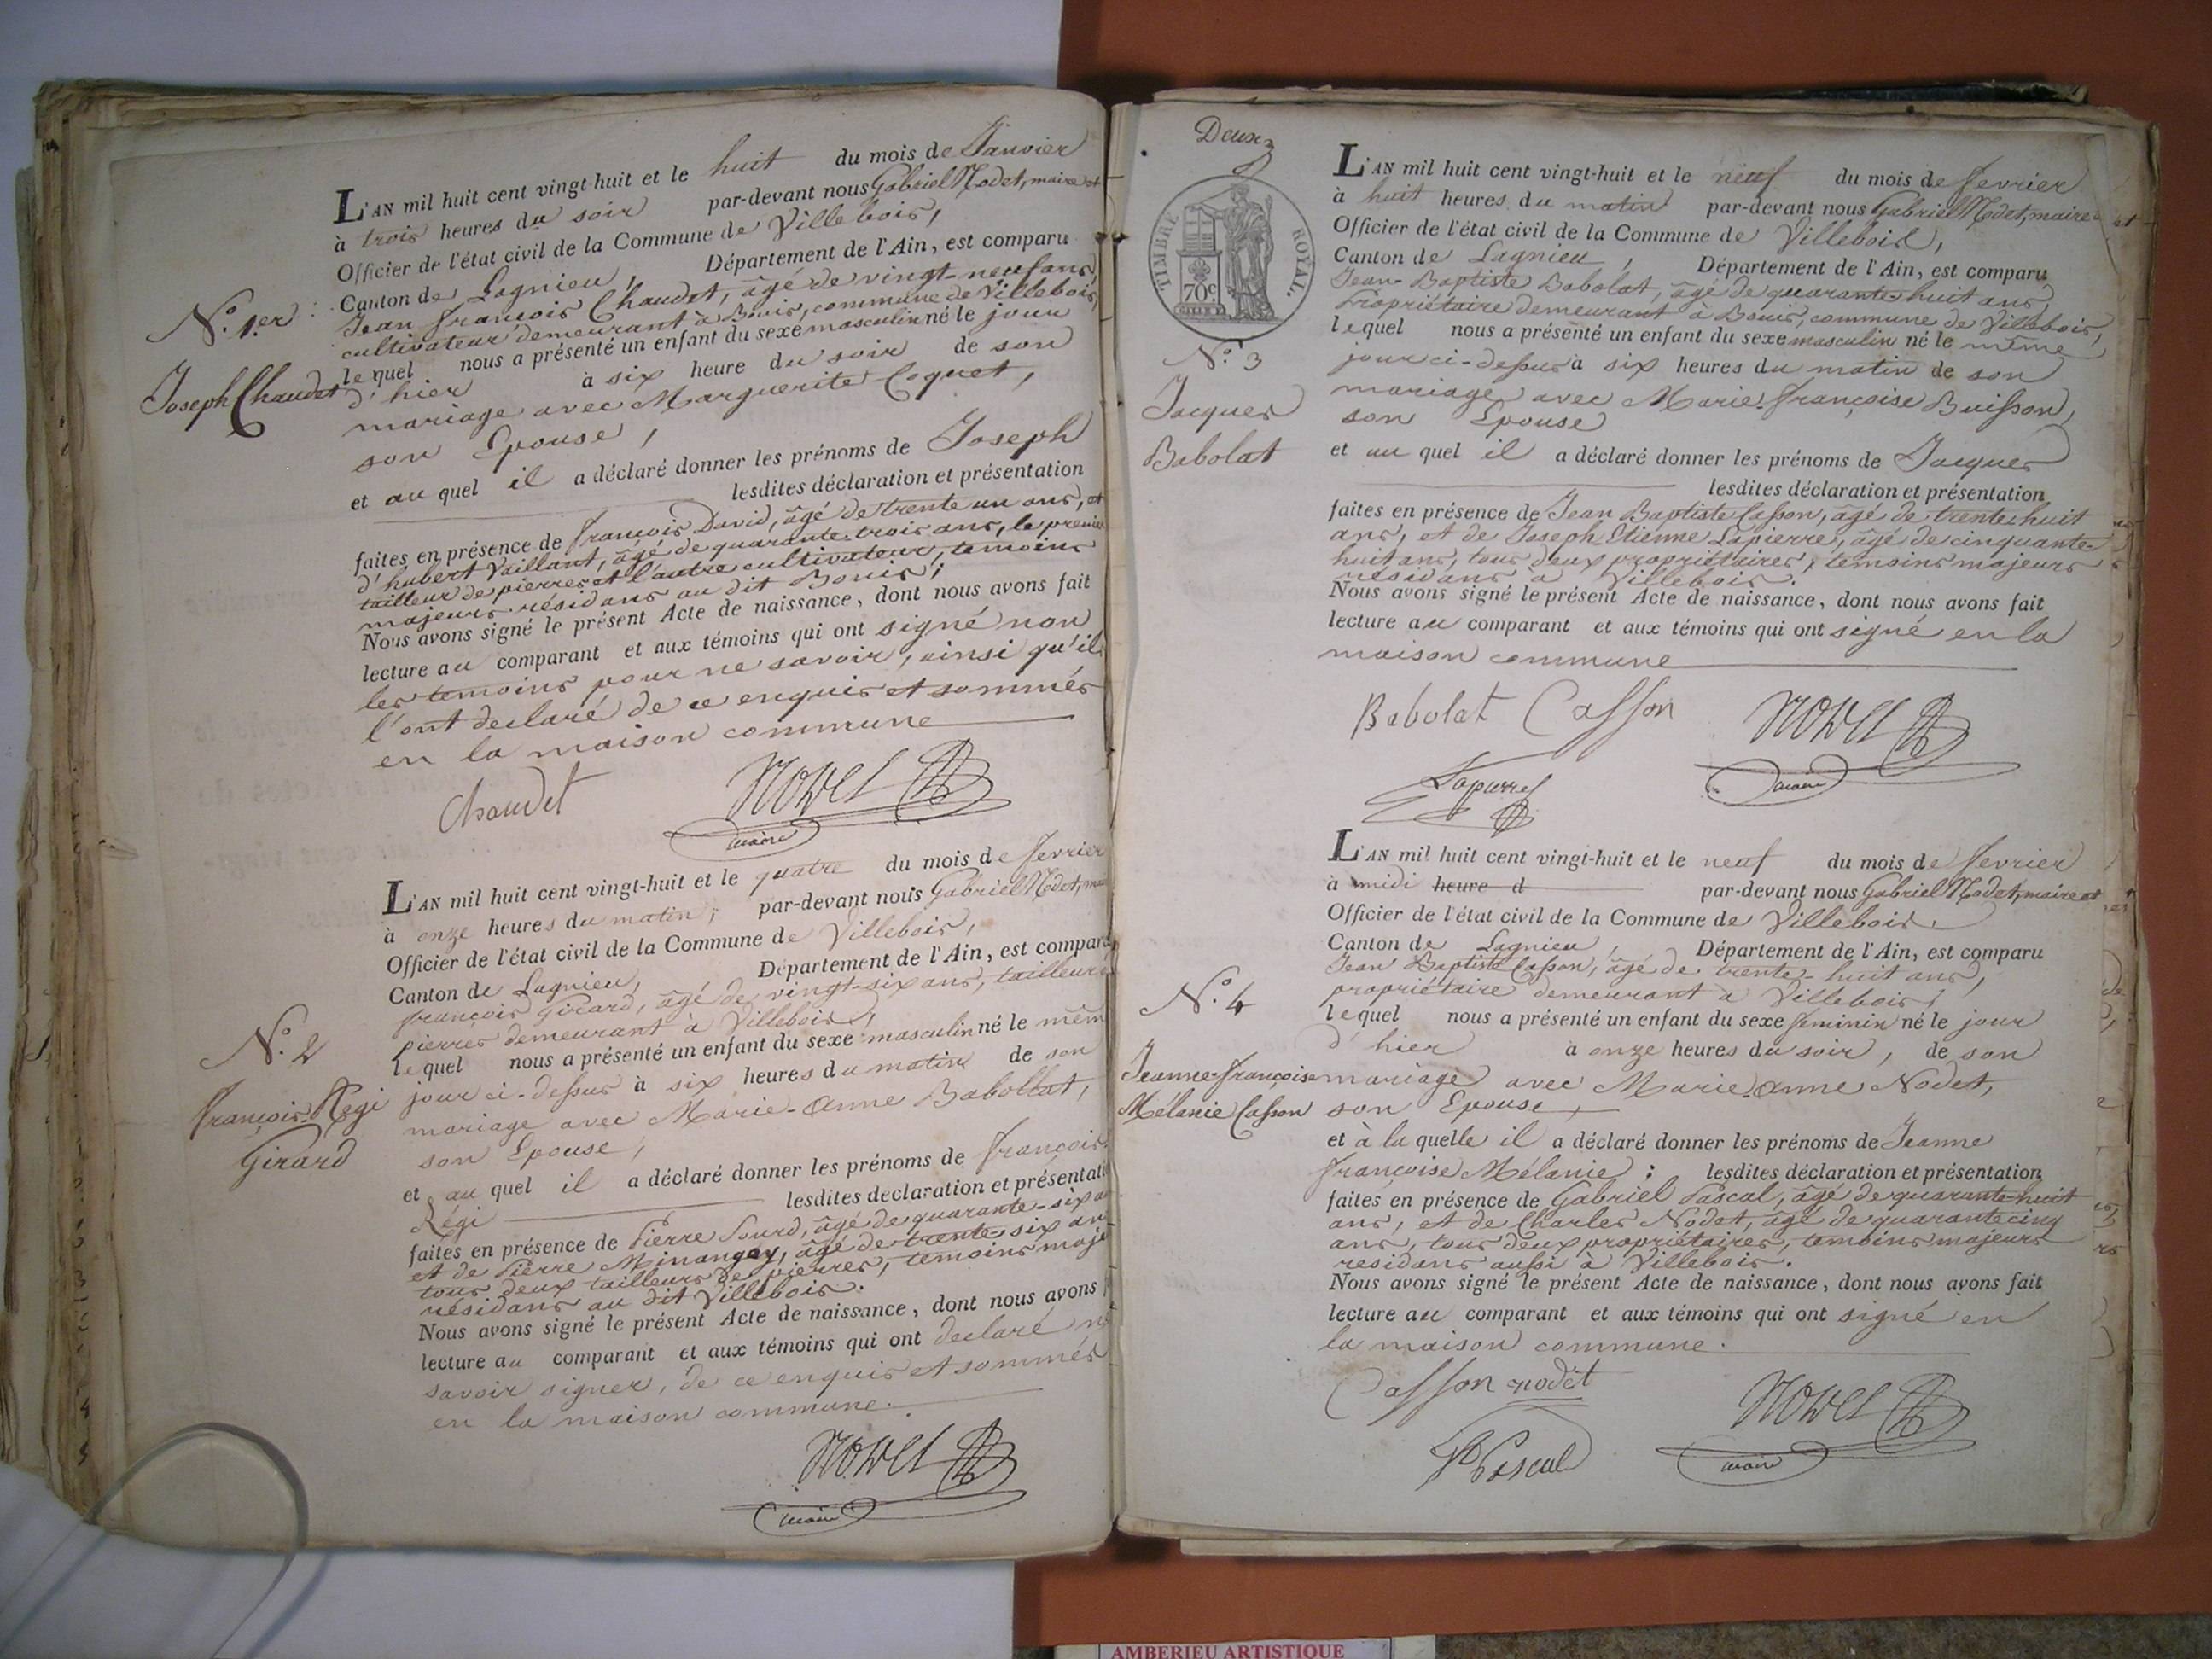 L'AN mil huit cent vingt-huit et le huit du mois de Janvier
à trois heures du soir par-devant nous Gabriel Nodet, maire et
Officier de l'état civil de la Commune de Villebois,
Canton de Lagnieu, Département de l'Ain, est comparu
Jean françois Chaudet, âgé de vingt-neuf ans,
cultivateur demeurant à Bouis, commune de Villebois,
lequel nous a présenté un enfant du sexe masculin né le jour
d'hier à six heure du soir de son
mariage avec Marguerite Coquet,
son Epouse,
et au quel il a déclaré donner les prénoms de Joseph
lesdites déclaration et présentation
faites en présence de françois David, âgé de trente un ans, et
d'hubert Vaillant, âgé de quarante-trois ans, le premier
tailleur de pierres et l'autre cultivateur, temoins
majeurs résidans au dit Bouis;
Nous avons signé le présent Acte de naissance, dont nous avons fait
lecture au comparant et aux témoins qui ont signé non
les temoins pour ne savoir, ainsi qu'ils
l'ont declaré de ce enquis et sommés
en la maison commune
Chaudet NODET
maire
N.º 1.er
Joseph Chaudet
L'AN mil huit cent vingt-huit et le quatre du mois de fevrier
à onze heures du matin, par-devant nous Gabriel Nodet, mai
Officier de l'état civil de la Commune de Villebois,
Canton de Lagnieu, Département de l'Ain, est comparu
françois Girard, âgé de vingt-six ans, tailleur
pierres demeurant à Villebois,
lequel nous a présenté un enfant du sexe masculin né le mêm
jour ci-dessus à six heures du matin de son
mariage avec Marie-Anne Babollat,
son Epouse,
et au quel il a déclaré donner les prénoms de françois
Régi lesdites declaration et présentati
faites en présence de Pierre Sourd, âgé de quarante-six an
et de Pierre Minangoy, âgé de trente six an
tous deux tailleurs de pierres, temoins maje
résidans au dit Villebois.
Nous avons signé le présent Acte de naissance, dont nous avons f
lecture au comparant et aux témoins qui ont declaré n
savoir signer, de ce enquis et sommés
en la maison commune.
NODET
maire
N.º 2
françois-Régi
Girard
Deux
TIMBRE ROYAL.
70c.
L'AN mil huit cent vingt-huit et le neuf du mois de fevrier
à huit heures du matin par-devant nous Gabriel Nodet, maire et
Officier de l'état civil de la Commune de Villebois,
Canton de Lagnieu, Département de l'Ain, est comparu
Jean-Baptiste Babolat, âgé de quarante-huit ans,
Propriétaire demeurant à Bouis, commune de Villebois,
lequel nous a présenté un enfant du sexe masculin né le même
jour ci-dessus à six heures du matin de son
mariage avec Marie-françoise Buisson,
son Epouse
et au quel il a déclaré donner les prénoms de Jacques
lesdites déclaration et présentation
faites en présence de Jean Baptiste Casson, âgé de trente huit
ans, et de Joseph Etienne Lapierre, âgé de cinquante-
huit ans, tous deux propriétaires, temoins majeurs
résidans à Villebois.
Nous avons signé le présent Acte de naissance, dont nous avons fait
lecture au comparant et aux témoins qui ont signé en la
maison commune
Babolat Casson NODET
Lapierre maire
N.º 3
Jacques
Babolat
L'AN mil huit cent vingt-huit et le neuf du mois de fevrier
à midi heure d par-devant nous Gabriel Nodet, maire et
Officier de l'état civil de la Commune de Villebois,
Canton de Lagnieu, Département de l'Ain, est comparu
Jean Baptiste Casson, âgé de trente-huit ans,
propriétaire demeurant à Villebois,
lequel nous a présenté un enfant du sexe feminin né le jour
d'hier à onze heures du soir, de son
mariage avec Marie-Anne Nodet,
son Epouse,
et à la quelle il a déclaré donner les prénoms de Jeanne
françoise Mélanie: lesdites déclaration et présentation
faites en présence de Gabriel Pascal, âgé de quarante-huit
ans, et de Charles Nodet, âgé de quarante cinq
ans, tous deux propriétaires, temoins majeurs
residans aussi à Villebois.
Nous avons signé le présent Acte de naissance, dont nous avons fait
lecture au comparant et aux témoins qui ont signé en
la maison commune.
Casson nodet NODET
Pascal maire
N.º 4
Jeanne-françoise
Mélanie Casson
AMBERIEU ARTISTIQUE